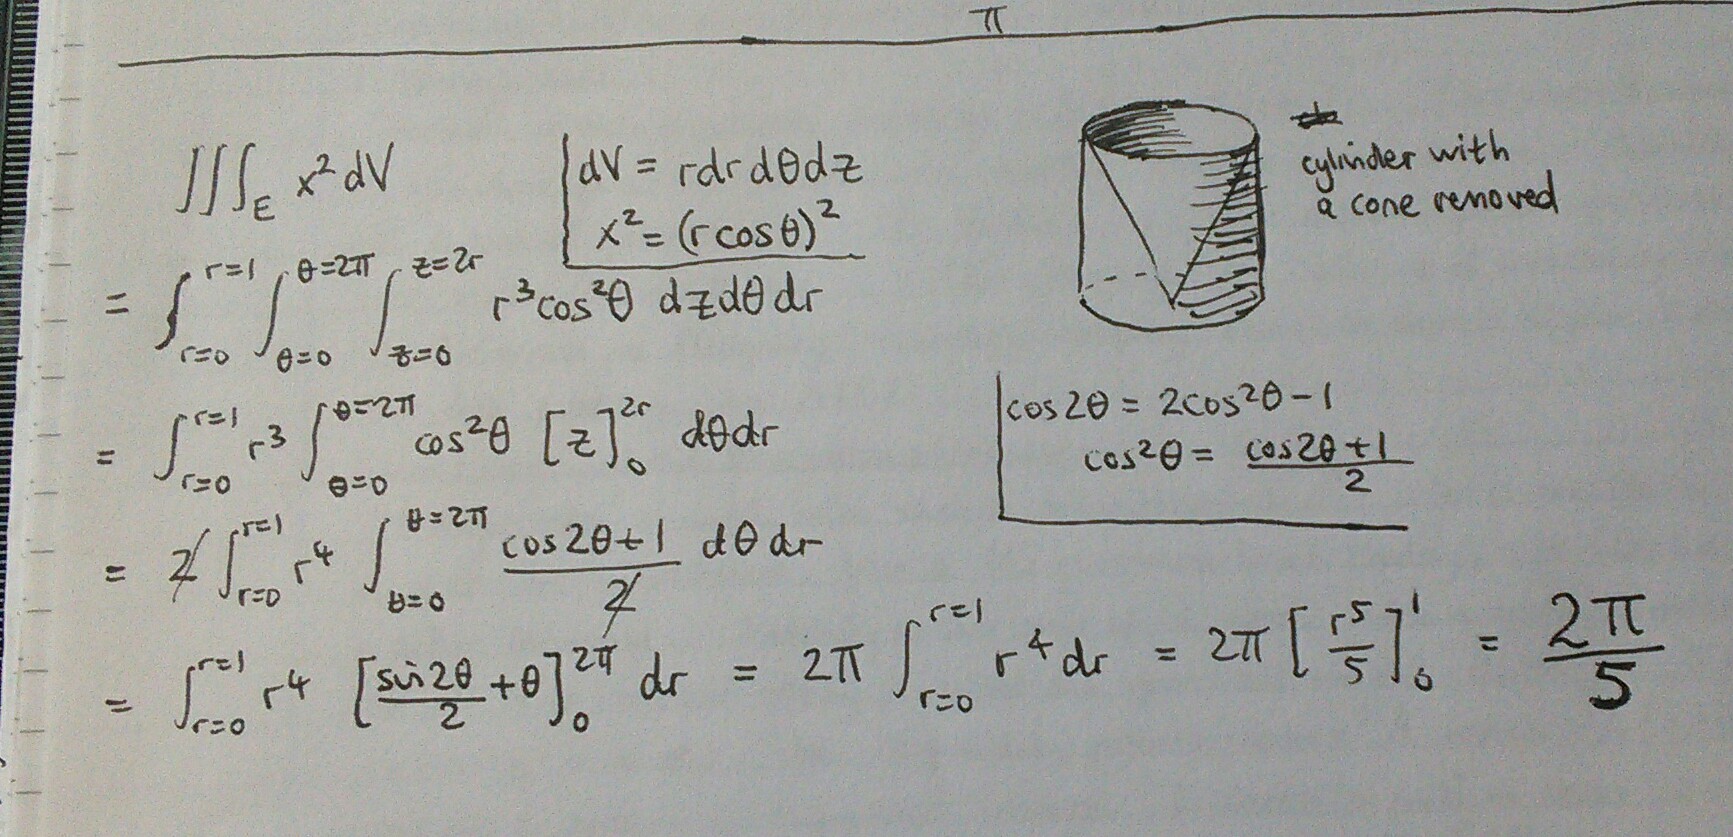 π
∭_E x² dV
dV = r dr dθ dz
x² = (r cos θ)²
cylinder with
a cone removed
= ∫_{r=0}^{r=1} ∫_{θ=0}^{θ=2π} ∫_{z=0}^{z=2r} r³cos²θ dz dθ dr
= ∫_{r=0}^{r=1} r³ ∫_{θ=0}^{θ=2π} cos²θ [z]_0^{2r} dθ dr
cos2θ = 2cos²θ − 1
cos²θ = (cos2θ + 1)/2
= 2 ∫_{r=0}^{r=1} r⁴ ∫_{θ=0}^{θ=2π} (cos2θ + 1)/2 dθ dr
= ∫_{r=0}^{r=1} r⁴ [sin2θ/2 + θ]_0^{2π} dr = 2π ∫_{r=0}^{r=1} r⁴ dr = 2π [r⁵/5]_0^1 = 2π/5